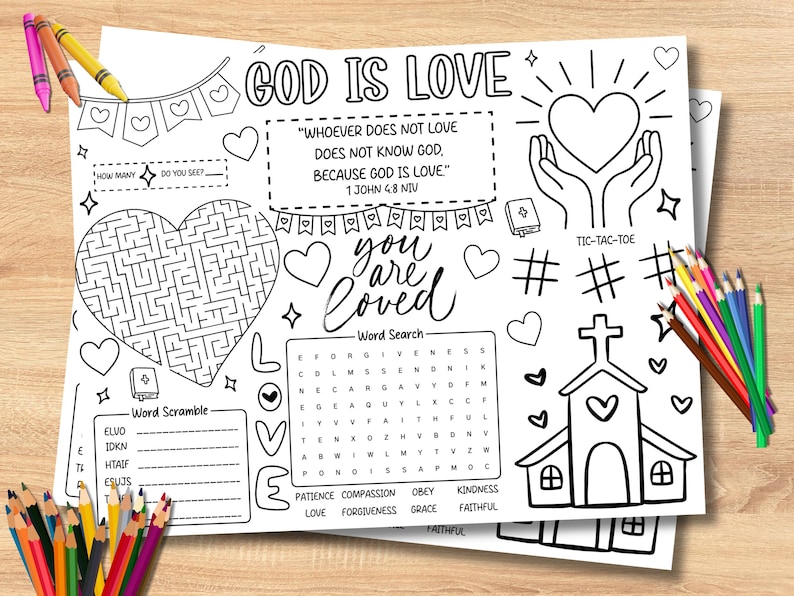 GOD IS LOVE
"WHOEVER DOES NOT LOVE
DOES NOT KNOW GOD,
BECAUSE GOD IS LOVE."
1 JOHN 4:8 NIV
HOW MANY DO YOU SEE?
you
are
loved
TIC-TAC-TOE
Word Search
E F O R G I V E N E S S
C D L M S S E N D N I K
N E C A R G A V Y D F M
E G E A Q U Y L X C C F
I Y V V F A I T H F U L
T E N X O Z H V B D N V
A B W I W L M T V Z V Z
P O N O I S S A P M O C
PATIENCE COMPASSION OBEY KINDNESS
LOVE FORGIVENESS GRACE FAITHFUL
LOVE
Word Scramble
ELVO
IDKN
HTAIF
ESUJS
FAITHFUL